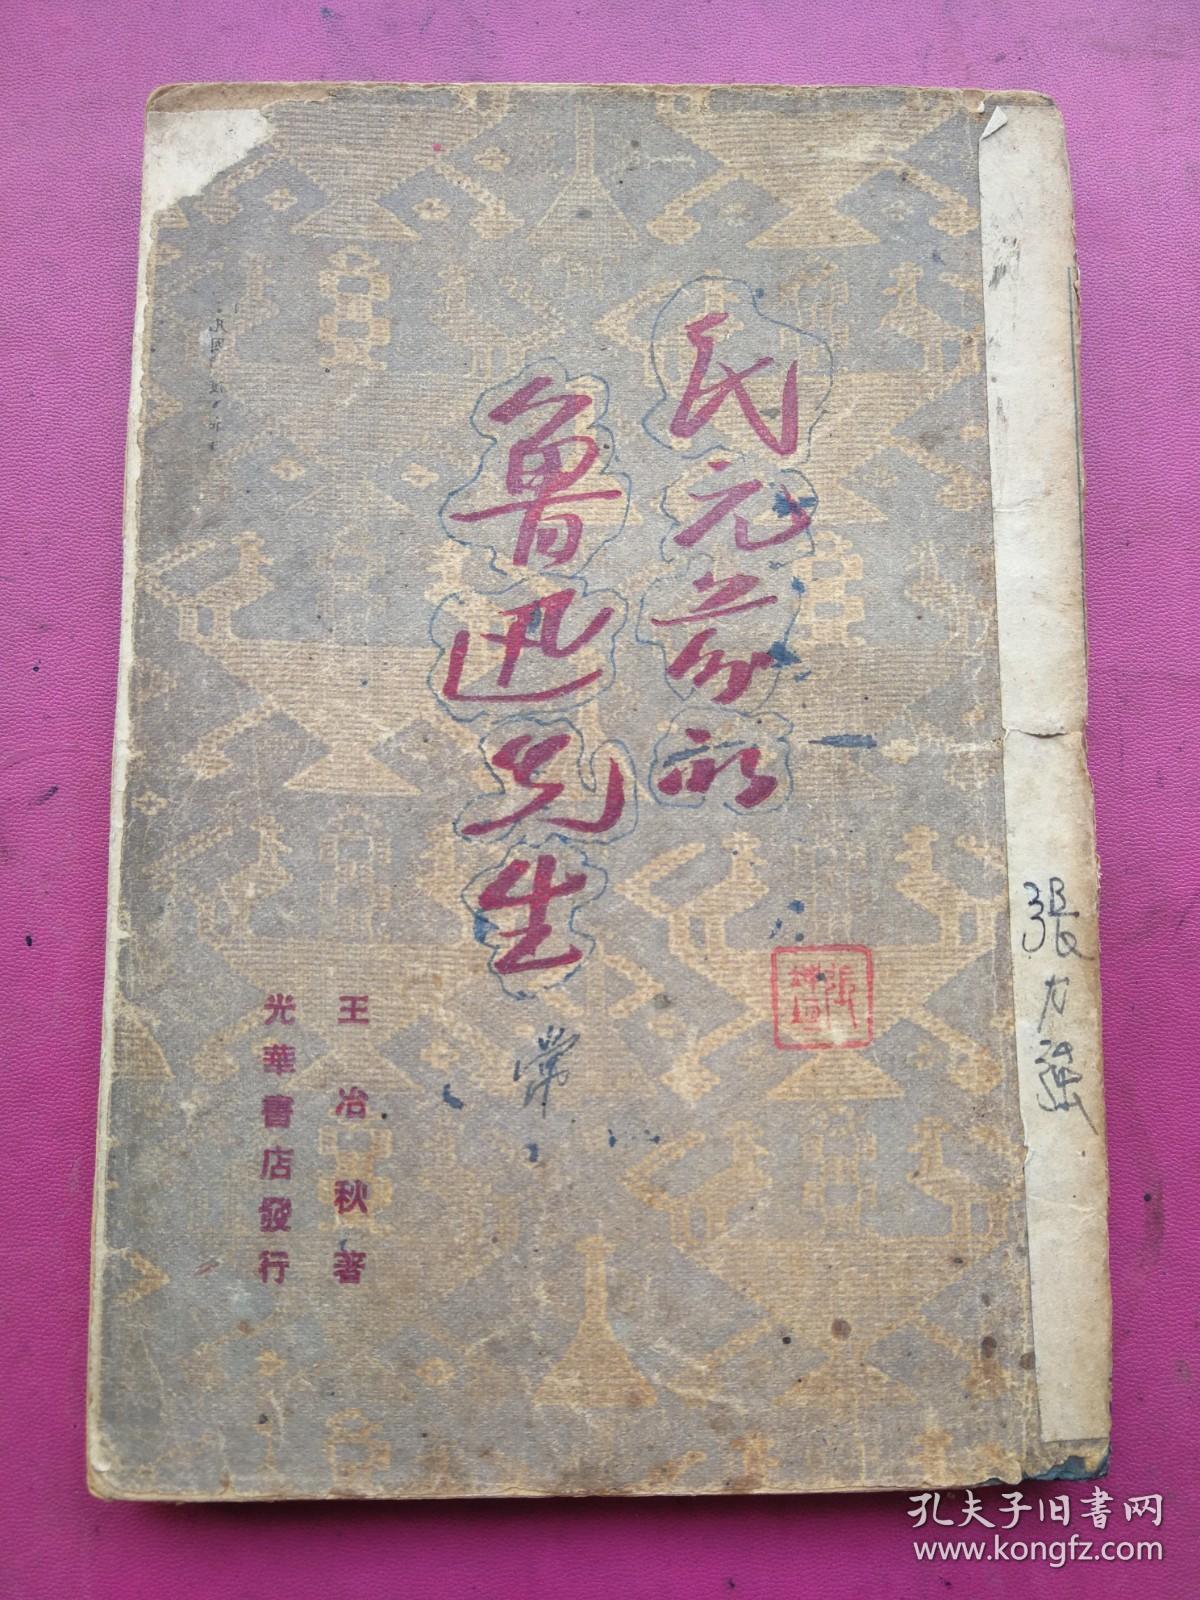 民元前的
魯迅先生
王冶秋著
光華書店發行
張力強
孔夫子旧书网
www.kongfz.com